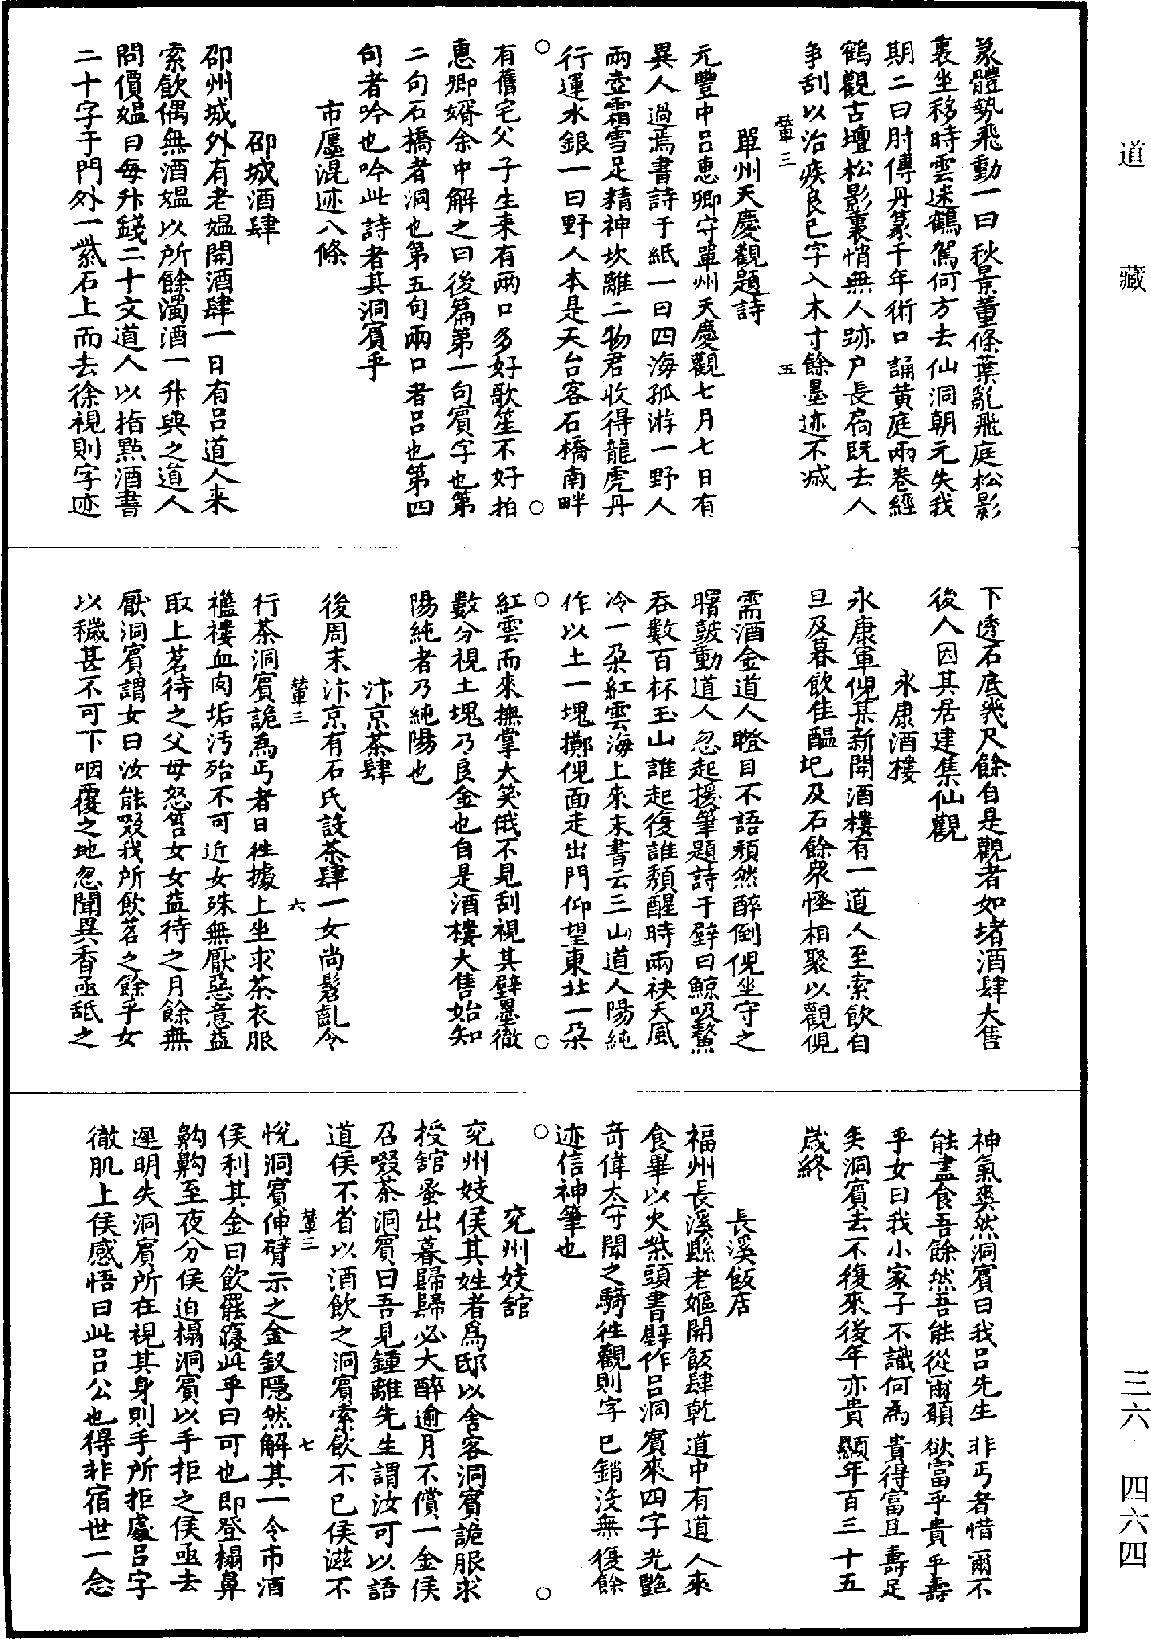 篆體勢飛動一曰秋景蕭條葉亂飛庭松影
裏坐移時雲迷鶴駕何方去仙洞朝元失我
期二曰肘傳丹篆千年術口誦黄庭兩卷經
鶴觀古壇松影裏悄無人跡户長扃既去人
争刮以治疾良已字入木寸餘墨迹不滅
輦三
五
單州天慶觀題詩
元豐中吕惠卿守單州天慶觀七月七日有
異人過焉書詩于紙一曰四海孤游一野人
兩壺霜雪足精神坎離二物君收得龍虎丹
行運水銀一曰野人本是天台客石橋南畔
有舊宅父子生来有兩口多好歌笙不好拍
惠卿婿余中解之曰後篇第一句賓字也第
二句石橋者洞也第五句兩口者吕也第四
句者吟也吟此詩者其洞賓乎
市廛混迹八條
邵城酒肆
邵州城外有老媪開酒肆一日有吕道人来
索飲偶無酒媪以所餘濁酒一升與之道人
問價媪曰每升錢二十文道人以指點酒書
二十字于門外一紫石上而去徐視則字迹
下透石底幾尺餘自是觀者如堵酒肆大售
後人因其居建集仙觀
永康酒樓
永康軍倪某新開酒樓有一道人至索飲自
旦及暮飲佳醖圯及石餘衆怪相聚以觀倪
需酒金道人瞪目不語頽然醉倒倪坐守之
曙鼓動道人忽起援筆題詩于壁曰鯨吸鰲
吞數百杯玉山誰起復誰頽醒時兩袂天風
冷一朵紅雲海上来末書云三山道人陽純
作以土一塊擲倪面走出門仰望東北一朵
紅雲而来撫掌大笑俄不見刮視其壁墨徹
數分視土塊乃良金也自是酒樓大售始知
陽純者乃純陽也
汴京茶肆
後周末汴京有石氏設茶肆一女尚髫齓令
輦三
六
行茶洞賓詭為丐者日徃據上坐求茶衣服
襤褸血肉垢汚殆不可近女殊無厭惡意益
取上茗待之父母怒笞女女益待之月餘無
厭洞賓謂女曰汝能啜我所飲茗之餘乎女
以穢甚不可下咽覆之地忽聞異香亟舐之
神氣爽然洞賓曰我吕先生非丐者惜爾不
能盡食吾餘然吾能從爾願欲富乎貴乎壽
乎女曰我小家子不識何為貴得富且壽足
矣洞賓去不復來後年亦貴顯年百三十五
歲終
長溪飯店
福州長溪縣老嫗開飯肆乾道中有道人來
食畢以火柴頭書壁作吕洞賓來四字光艶
奇偉太守聞之騎徃觀則字已銷沒無復餘
迹信神筆也
兖州妓舘
兖州妓侯其姓者爲邸以舍客洞賓詭服求
授舘蚤出暮歸歸必大醉逾月不償一金侯
召啜茶洞賓曰吾見鍾離先生謂汝可以語
道侯不省以酒飲之洞賓索飲不已侯滋不
輦三
七
悦洞賓伸臂示之金釵隱然解其一令市酒
侯利其金曰飲罷寢此乎曰可也即登榻鼻
齁齁至夜分侯迫榻洞賓以手拒之侯亟去
遲明失洞賓所在視其身則手所拒處吕字
徹肌上侯感悟曰此吕公也得非宿世一念
道藏
三六 四六四